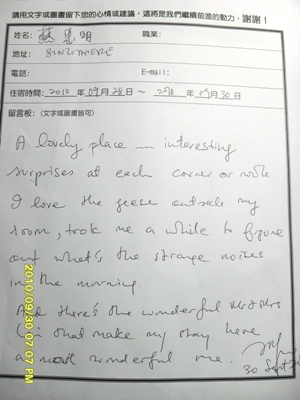 請用文字或圖畫留下您的心情或建議，這將是我們繼續前進的動力，謝謝！
姓名: 明 職業:
地址: SINGAPORE
電話: E-mail:
住宿時間: 2010 年 09 月 28 日 ~ 2010 年 09 月 30 日
留言板: (文字或圖畫皆可)
A lovely place — interesting
surprises at each corner or nook.
I love the geese outside my
room, took me a while to figure
out what's the strange noises
in the morning.
And there's the wonderful Mr & Mrs
that make my stay here
a most wonderful one.
30 Sept
2010/09/30 07:07 PM